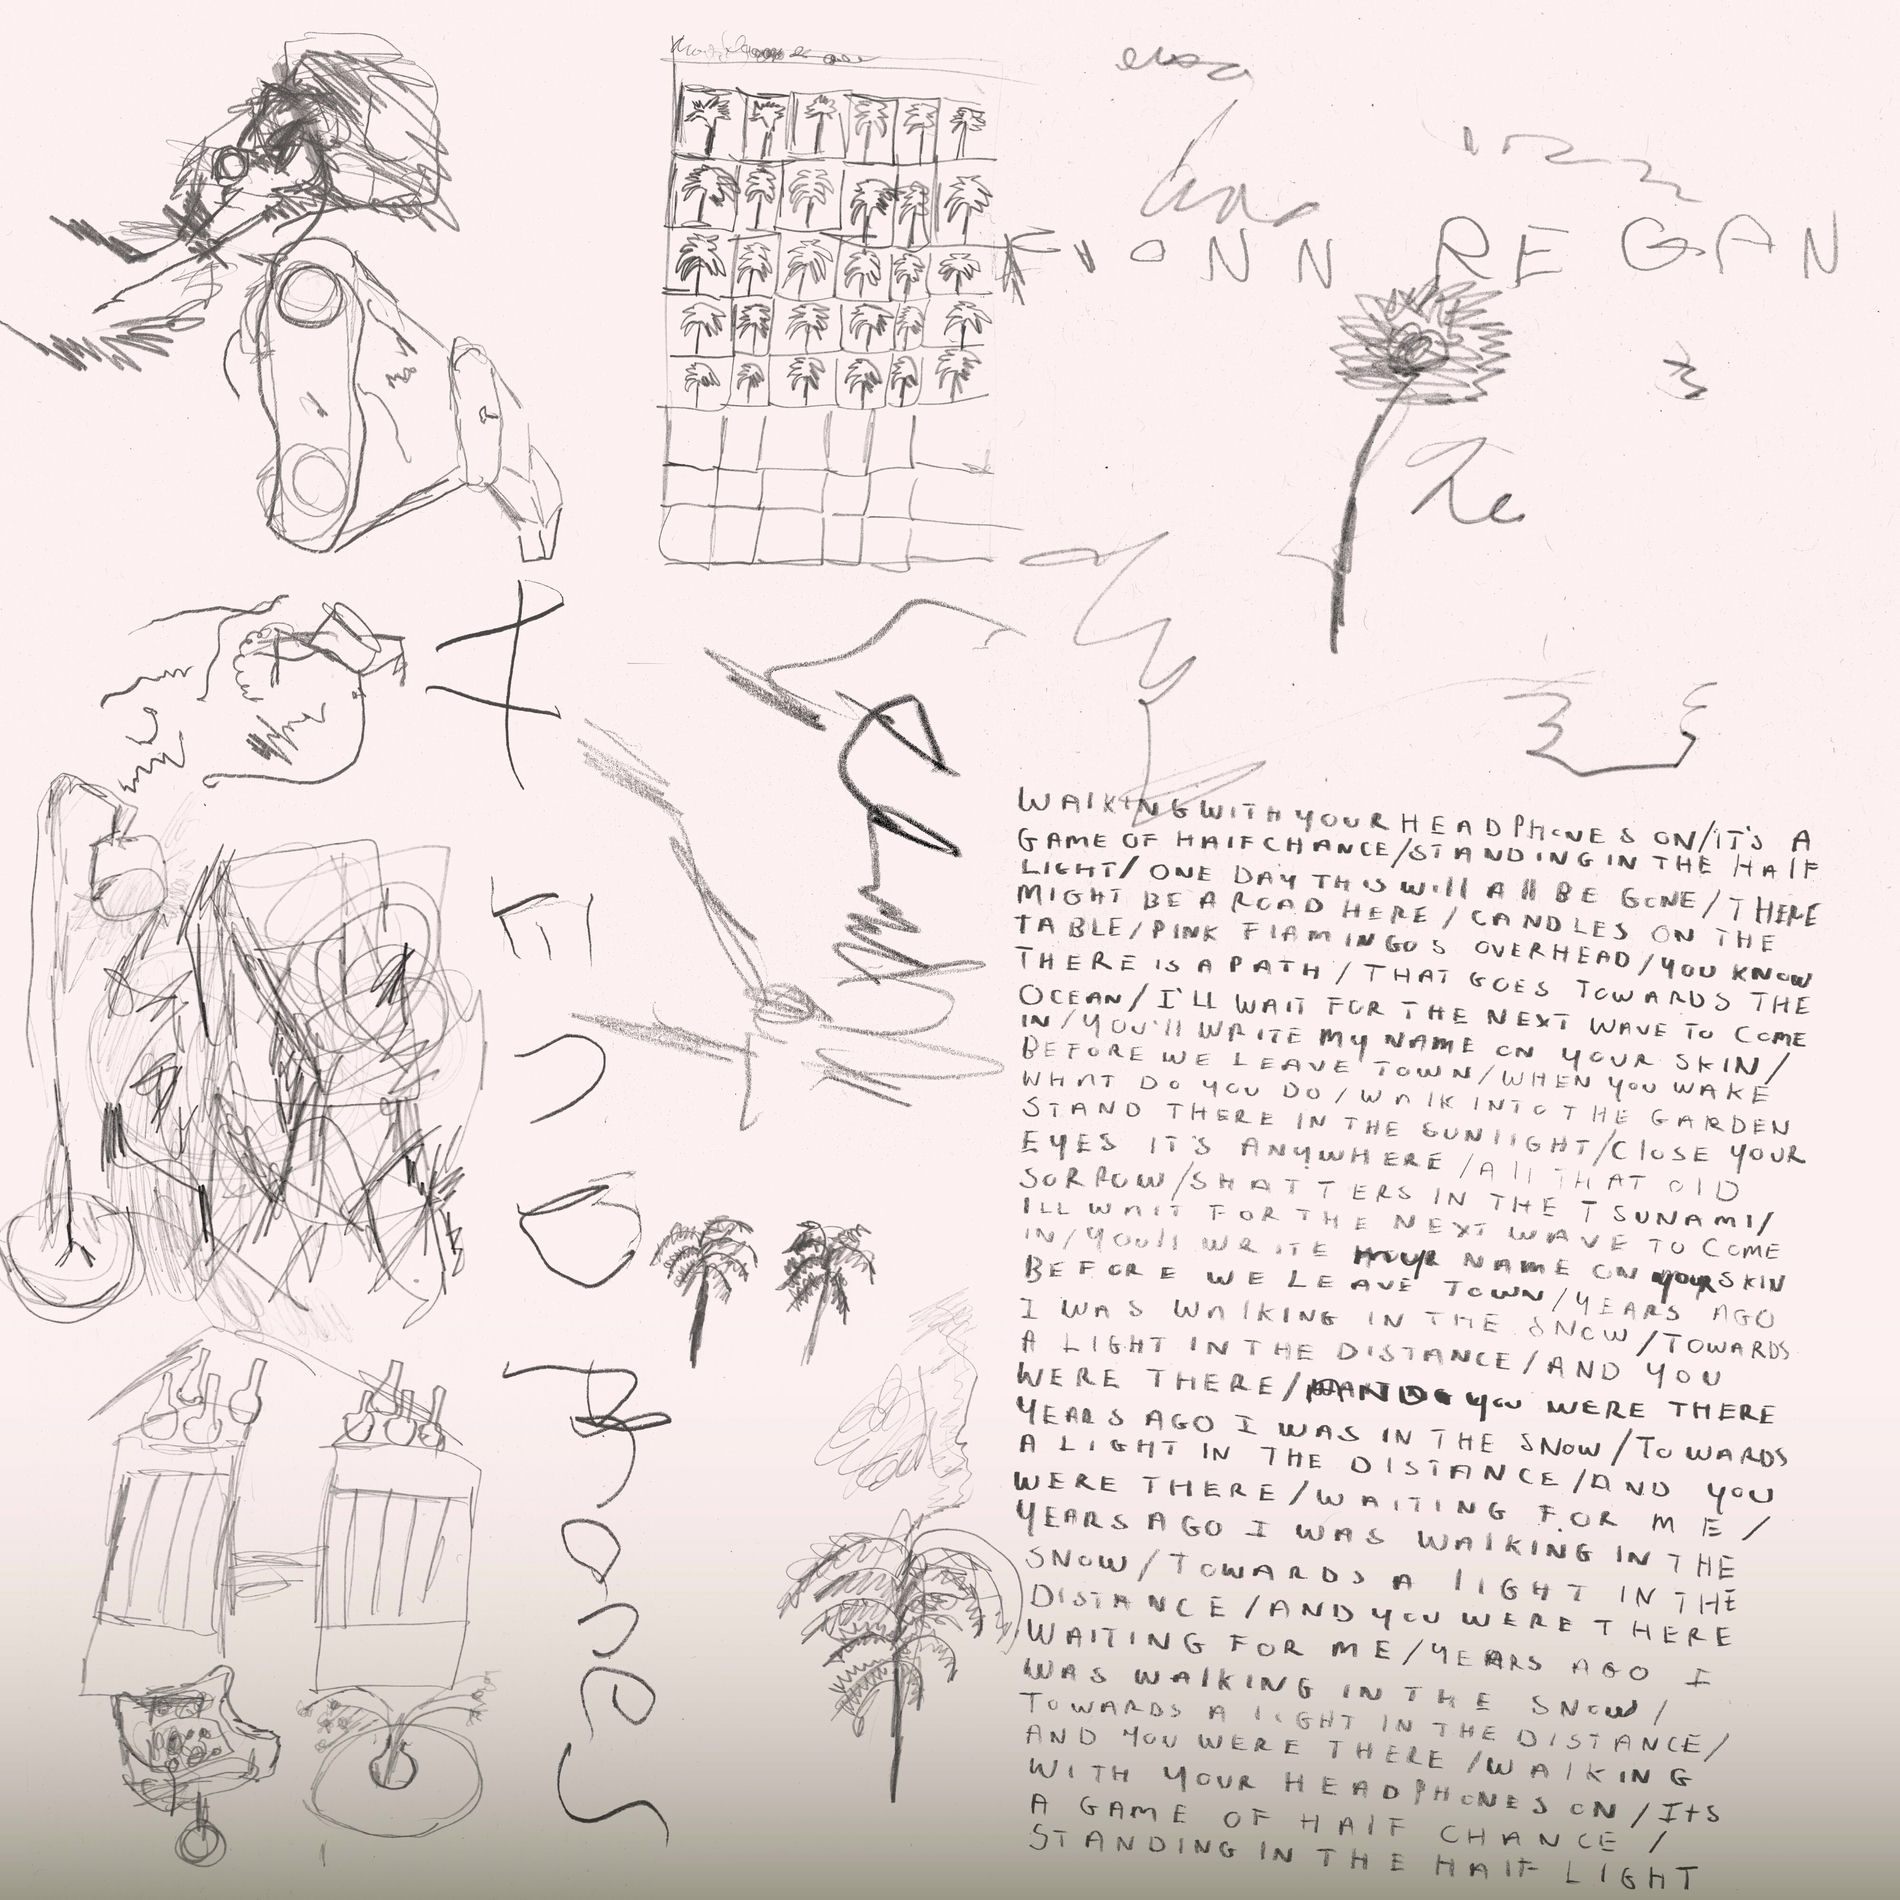 FIONN REGAN
WALKING WITH YOUR HEADPHONES ON/IT'S A
GAME OF HALF CHANCE/STANDING IN THE HALF
LIGHT/ ONE DAY THIS WILL ALL BE GONE/THERE
MIGHT BE A ROAD HERE/CANDLES ON THE
TABLE/PINK FLAMINGOS OVERHEAD/YOU KNOW
THERE IS A PATH/THAT GOES TOWARDS THE
OCEAN/I'LL WAIT FOR THE NEXT WAVE TO COME
IN/YOU'LL WRITE MY NAME ON YOUR SKIN/
BEFORE WE LEAVE TOWN/WHEN YOU WAKE
WHAT DO YOU DO/WALK INTO THE GARDEN
STAND THERE IN THE SUNLIGHT/CLOSE YOUR
EYES IT'S ANYWHERE/ALL THAT OLD
SORROW/SHATTERS IN THE TSUNAMI/
ILL WAIT FOR THE NEXT WAVE TO COME
IN/YOU'LL WRITE NAME ON YOUR SKIN
BEFORE WE LEAVE TOWN/YEARS AGO
I WAS WALKING IN THE SNOW/TOWARDS
A LIGHT IN THE DISTANCE/AND YOU
WERE THERE/AND YOU WERE THERE
YEARS AGO I WAS IN THE SNOW/TOWARDS
A LIGHT IN THE DISTANCE/AND YOU
WERE THERE/WAITING FOR ME/
YEARS AGO I WAS WALKING IN THE
SNOW/TOWARDS A LIGHT IN THE
DISTANCE/AND YOU WERE THERE
WAITING FOR ME/YEARS AGO I
WAS WALKING IN THE SNOW/
TOWARDS A LIGHT IN THE DISTANCE/
AND YOU WERE THERE/WALKING
WITH YOUR HEADPHONES ON/ITS
A GAME OF HALF CHANCE/
STANDING IN THE HALF LIGHT